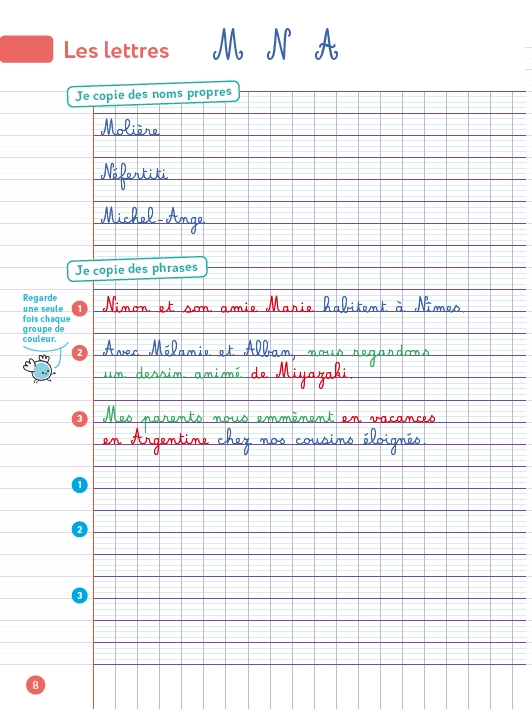 Les lettres M N A
Je copie des noms propres
Molière
Néfertiti
Michel-Ange
Je copie des phrases
Regarde
une seule
fois chaque
groupe de
couleur.
1 Ninon et son amie Marie habitent à Nîmes.
2 Avec Mélanie et Alban, nous regardons
un dessin animé de Miyazaki.
3 Mes parents nous emmènent en vacances
en Argentine chez nos cousins éloignés.
1
2
3
8